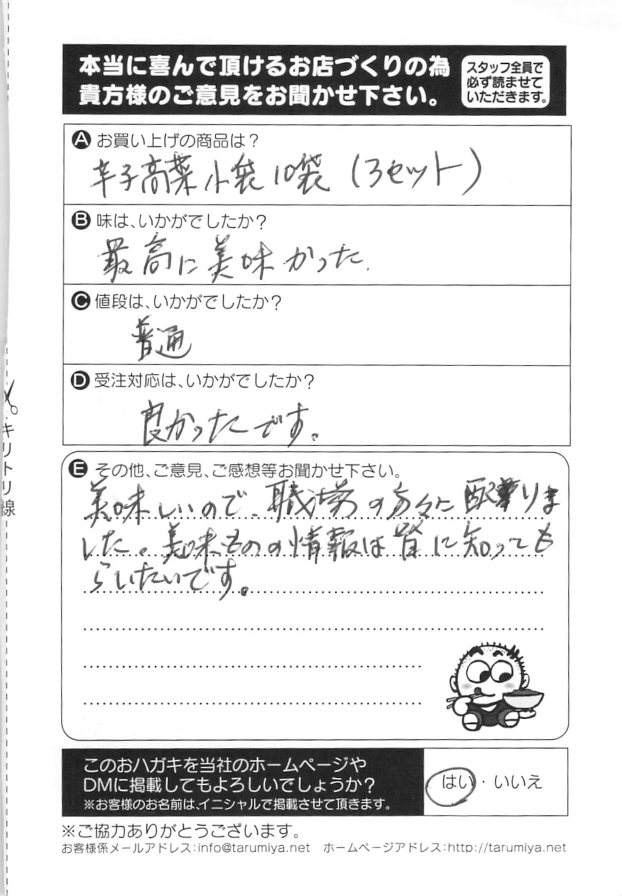 本当に喜んで頂けるお店づくりの為
貴方様のご意見をお聞かせ下さい。
スタッフ全員で
必ず読ませて
いただきます。
Ⓐ お買い上げの商品は？
辛子高菜小袋10袋（3セット）
Ⓑ 味は、いかがでしたか？
最高に美味かった.
Ⓒ 値段は、いかがでしたか？
普通
Ⓓ 受注対応は、いかがでしたか？
良かったです。
Ⓔ その他、ご意見、ご感想等お聞かせ下さい。
美味しいので、職場の方々に配りま
した。美味ものの情報は皆に知っても
らいたいです。
キリトリ線
このおハガキを当社のホームページや
DMに掲載してもよろしいでしょうか？
※お客様のお名前は、イニシャルで掲載させて頂きます。
はい・いいえ
※ご協力ありがとうございます。
お客様係メールアドレス：info@tarumiya.net ホームページアドレス：http://tarumiya.net